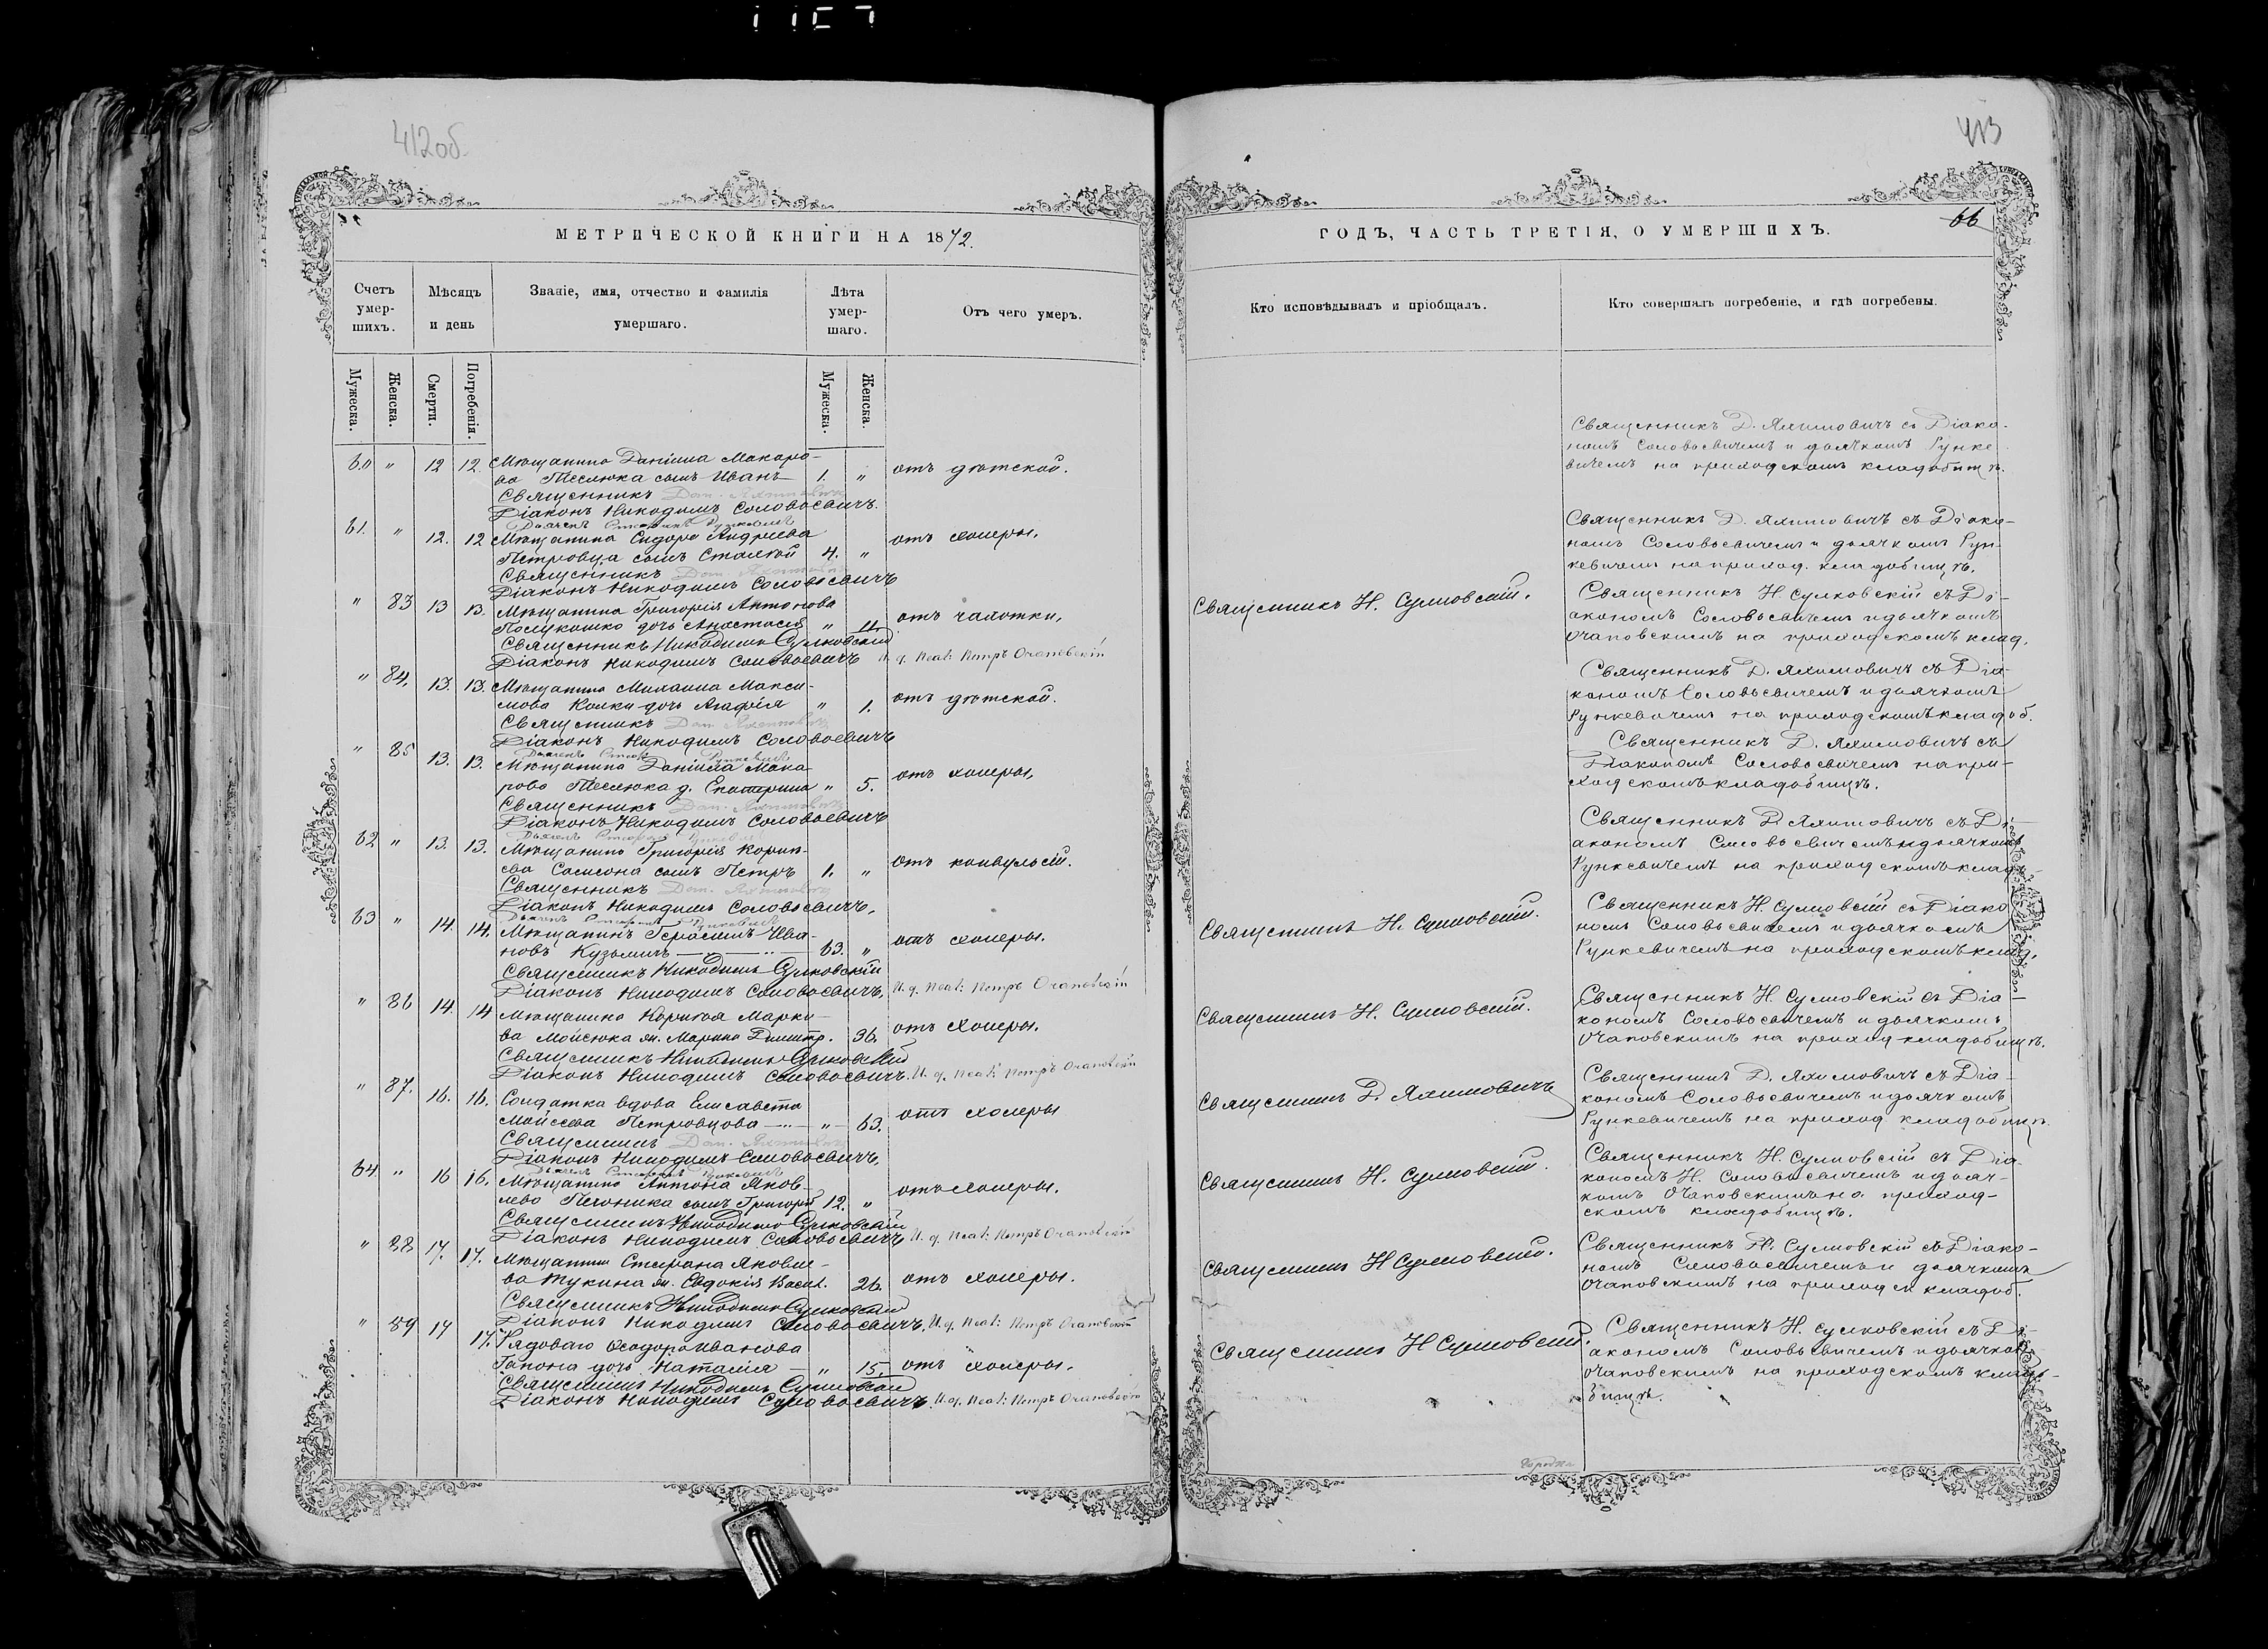 412об.
413
66
МЕТРИЧЕСКОЙ КНИГИ НА 1872.
ГОДЪ, ЧАСТЬ ТРЕТІЯ, О УМЕРШИХЪ.
Счетъ умер-шихъ.
Мѣсяцъ и день
Званіе, имя, отчество и фамилія умершаго.
Лѣта умер-шаго.
Отъ чего умеръ.
Кто исповѣдывалъ и пріобщалъ.
Кто совершалъ погребеніе, и гдѣ погребены.
Мужеска.
Женска.
Смерти.
Погребенія.
Мужеска.
Женска.
60 " 12 12. Мѣщанина Даніила Макаро-
ва Теслюка сынъ Иванъ 1. " отъ дѣтской.
Священникъ Дан. Яхимовичъ
Діаконъ Никодимъ Соловьевичъ.
Священникъ Д. Яхимовичъ съ Діако-
номъ Соловьевичемъ и дьячкомъ Рунке-
вичемъ на приходскомъ кладбищѣ.
61. " 12. 12 Мѣщанина Сидора Андреева
Петровца сынъ 4. " отъ холеры.
Священникъ Дан. Яхимовичъ
Діаконъ Никодимъ Соловьевичъ
Священникъ Д. Яхимовичъ съ Діако-
номъ Соловьевичемъ и дьячкомъ Рун-
кевичемъ на приход. кладбищѣ.
" 83 13 13. Мѣщанина Григорія Антонова
Полукошко дочь Анастасія " 11. отъ чахотки.
Священникъ Никодимъ Сулковскій
Діаконъ Никодимъ Соловьевичъ И. д. Псал: Петръ Очаповскій
Священникъ Н. Сулковскій.
Священникъ Н. Сулковскій съ Ді-
акономъ Соловьевичемъ и дьячкомъ
Очаповскимъ на приходскомъ клад.
" 84. 13. 13. Мѣщанина Михаила Макси-
мова дочь Агафія " 1. отъ дѣтской.
Священникъ Дан. Яхимовичъ
Діаконъ Никодимъ Соловьевичъ
Священникъ Д. Яхимовичъ съ Діа-
кономъ Соловьевичемъ и дьячкомъ
Рункевичемъ на приходскомъ кладоб.
" 85 13. 13. Мѣщанина Даніила Мака-
рова Теслюка д. Екатерина " 5. отъ холеры.
Священникъ Дан. Яхимовичъ
Діаконъ Никодимъ Соловьевичъ
Священникъ Д. Яхимовичъ съ
Діакономъ Соловьевичемъ на при-
ходскомъ кладбищѣ.
62 " 13. 13. Мѣщанина Григорія Корни-
ева Самсона сынъ Петръ 1. " отъ конвульсій.
Священникъ Дан. Яхимовичъ
Діаконъ Никодимъ Соловьевичъ.
Священникъ Д. Яхимовичъ съ Ді-
акономъ Соловьевичемъ и дьячкомъ
Рункевичемъ на приходскомъ кладб.
63 " 14. 14. Мѣщанинъ Герасимъ Ива-
новъ Кузьмичъ 63. " отъ холеры.
Священникъ Никодимъ Сулковскій
Діаконъ Никодимъ Соловьевичъ. И. д. Псал: Петръ Очаповскій
Священникъ Н. Сулковскій.
Священникъ Н. Сулковскій съ Діако-
номъ Соловьевичемъ и дьячкомъ
Рункевичемъ на приходскомъ клад.
" 86 14. 14 Мѣщанина Корнилія Марко-
ва Мойсюка ж. Марина Димитр. 36. отъ холеры.
Священникъ Никодимъ Сулковскій
Діаконъ Никодимъ Соловьевичъ. И. д. Псал: Петръ Очаповскій
Священникъ Н. Сулковскій.
Священникъ Н. Сулковскій съ Діа-
кономъ Соловьевичемъ и дьячкомъ
Очаповскимъ на приход кладбищѣ.
" 87. 16. 16. Солдатка вдова Елисавета
Мойсеева Петровцова " 63. отъ холеры
Священникъ Дан. Яхимовичъ
Діаконъ Никодимъ Соловьевичъ.
Священникъ Д. Яхимовичъ
Священникъ Д. Яхимовичъ съ Діа-
кономъ Соловьевичемъ и дьячкомъ
Рункевичемъ на приход кладбищѣ.
64 " 16 16. Мѣщанина Антона Яков-
лева сынъ Григорій 12. " отъ холеры.
Священникъ Никодимъ Сулковскій
Діаконъ Никодимъ Соловьевичъ И. д. Псал: Петръ Очаповскій
Священникъ Н. Сулковскій.
Священникъ Н. Сулковскій съ Діа-
кономъ Н. Соловьевичемъ и дьяч-
комъ Очаповскимъ на приход-
скомъ кладбищѣ.
" 88 17. 17. Мѣщанина Стефана Яковле-
ва ж. Евдокія Васил. 26. отъ холеры.
Священникъ Никодимъ Сулковскій
Діаконъ Никодимъ Соловьевичъ. И. д. Псал: Петръ Очаповскій
Священникъ Н Сулковскій.
Священникъ Н. Сулковскій съ Діако-
номъ Соловьевичемъ и дьячкомъ
Очаповскимъ на приход кладоб.
" 89 17 17. Рядоваго Ѳеодора Иванова
Гапона дочь Наталія " 15. отъ холеры.
Священникъ Никодимъ Сулковскій
Діаконъ Никодимъ Соловьевичъ. И. д. Псал: Петръ Очаповскій
Священникъ Н Сулковскій.
Священникъ Н. Сулковскій съ Ді-
акономъ Соловьевичемъ и дьячком
Очаповскимъ на приходскомъ клад-
бищѣ.